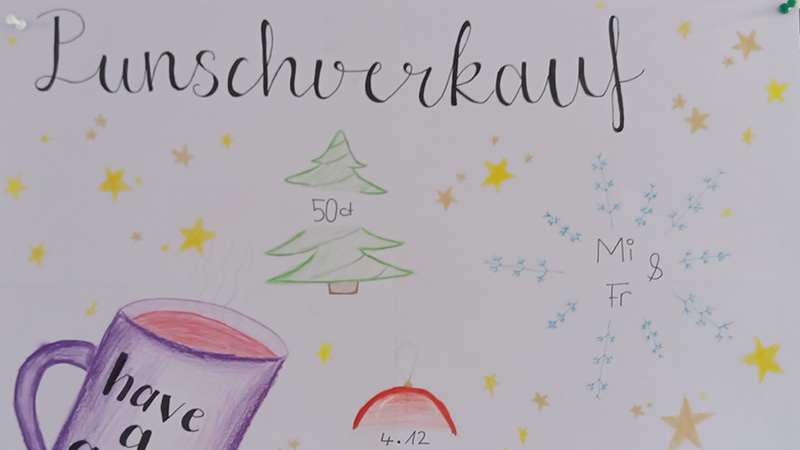 Punschverkauf
50ct
Mi &
Fr
have
a
4.12